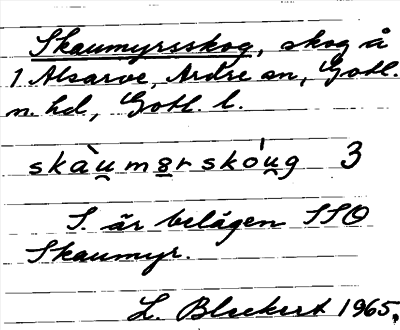 Skaumyrsskog, skog å
1 Alsarve, Ardre sn, Gotl.
n. hd, Gotl. l.
skàu̯m8rskóu̯g 3
S. är belägen SSO
Skaumyr.
L. Bleckert 1965.